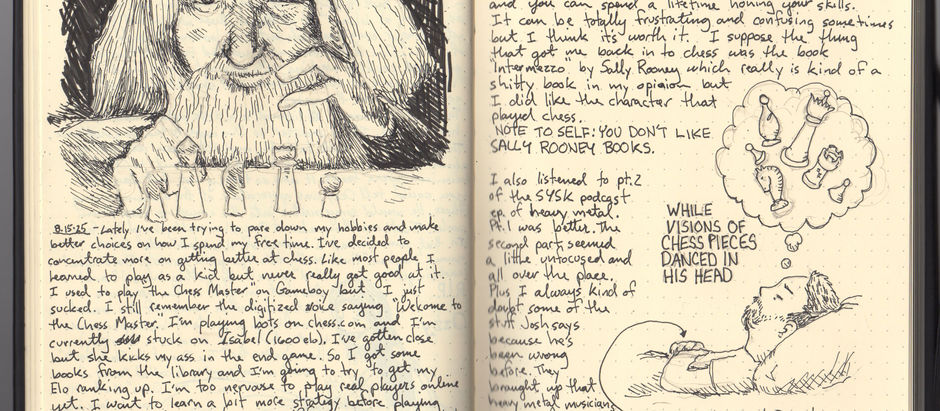 8.15.25 - Lately I've been trying to pare down my hobbies and make
better choices on how I spend my free time. I've decided to
concentrate more on getting better at chess. Like most people I
learned to play as a kid but never really got good at it.
I used to play "the Chess Master" on Gameboy but I just
sucked. I still remember the digitized voice saying "Welcome to
the Chess Master. I'm playing bots on chess.com and I'm
currently stuck on Isabel (1600 elo). I've gotten close
but she kicks my ass in the end game. So I got some
books from the library and I'm going to try to get my
Elo ranking up. I'm too nervouse to play real players online
yet. I want to learn a bit more strategy before playing
and you can spend a lifetime honing your skills.
It can be totally frustrating and confusing sometimes
but I think it's worth it. I suppose the thing
that got me back in to chess was the book
"Intermezzo" by Sally Rooney which really is kind of a
shitty book in my opinion but
I did like the character that
played chess.
NOTE TO SELF: YOU DON'T LIKE
SALLY ROONEY BOOKS.
I also listened to pt.2
of the SYSK podcast
ep. of heavy metal.
Pt. 1 was better. The
second part seemed
a little unfocused and
all over the place.
Plus I always kind of
doubt some of the
stuff Josh says
because he's
been wrong
before. They
braught up that
heavy metal musicians
WHILE
VISIONS OF
CHESS PIECES
DANCED IN
HIS HEAD